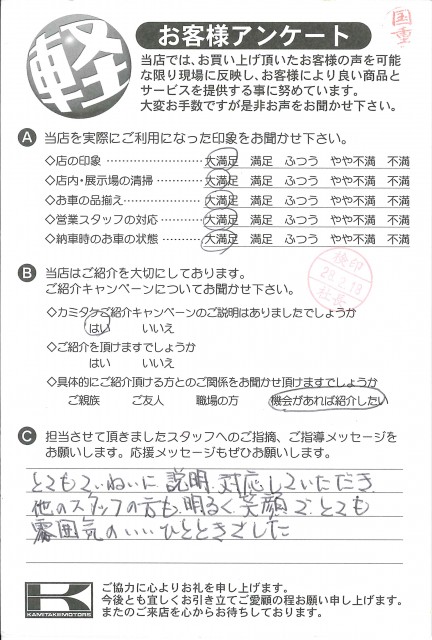 軽
お客様アンケート
国重
当店では、お買い上げ頂いたお客様の声を可能
な限り現場に反映し、お客様により良い商品と
サービスを提供する事に努めています。
大変お手数ですが是非お声をお聞かせ下さい。
A 当店を実際にご利用になった印象をお聞かせ下さい。
◇店の印象 ………………… 大満足 満足 ふつう やや不満 不満
◇店内・展示場の清掃………… 大満足 満足 ふつう やや不満 不満
◇お車の品揃え……………… 大満足 満足 ふつう やや不満 不満
◇営業スタッフの対応 ……… 大満足 満足 ふつう やや不満 不満
◇納車時のお車の状態 ……… 大満足 満足 ふつう やや不満 不満
検印
28.2.18
社長
B 当店はご紹介を大切にしております。
ご紹介キャンペーンについてお聞かせ下さい。
◇カミタケご紹介キャンペーンのご説明はありましたでしょうか
はい いいえ
◇ご紹介を頂けますでしょうか
はい いいえ
◇具体的にご紹介頂ける方とのご関係をお聞かせ頂けますでしょうか
ご親族 ご友人 職場の方 機会があれば紹介したい
C 担当させて頂きましたスタッフへのご指摘、ご指導メッセージを
お願いします。応援メッセージもぜひお願いします。
とてもていねいに説明、対応していただき
他のスタッフの方も、明るく笑顔で、とても
雰囲気のいいひとときでした
K
KAMITAKEMOTORS
ご協力に心よりお礼を申し上げます。
今後とも宜しくお引き立てご愛顧の程お願い申し上げます。
またのご来店を心からお待ちしております。